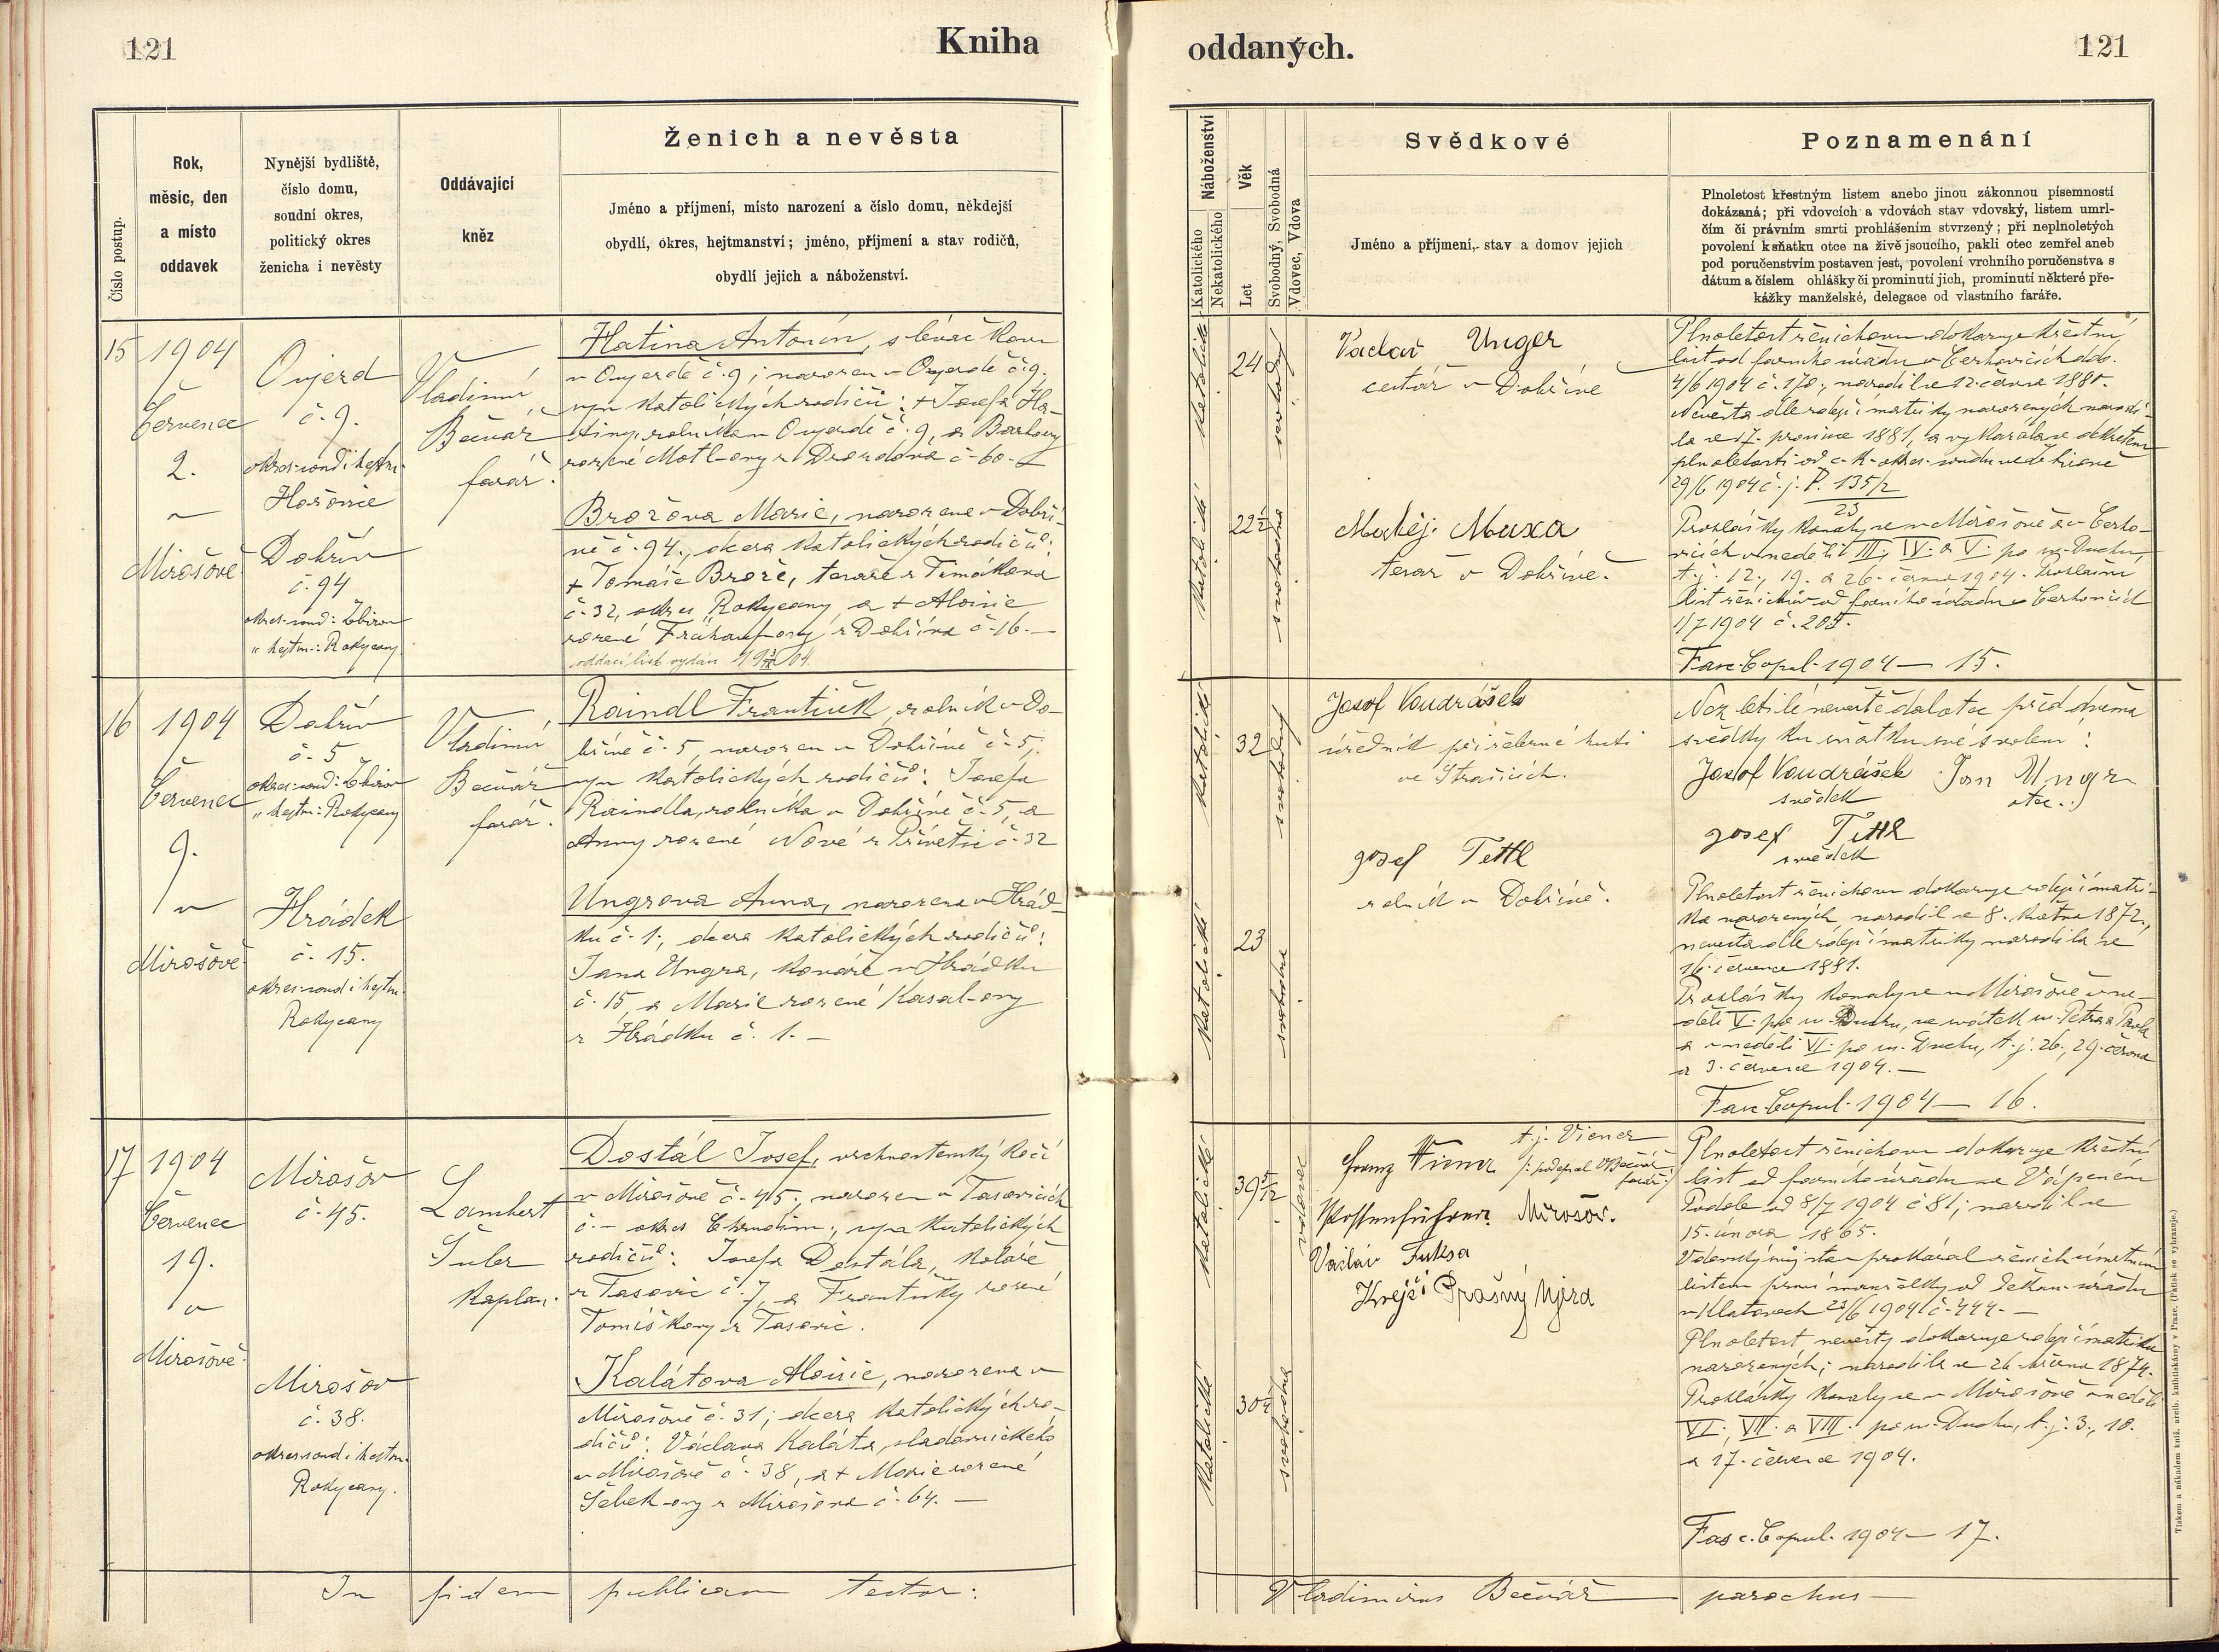 121
Kniha
oddaných.
121
Číslo postup.
Rok,
měsíc, den
a místo
oddavek
Nynější bydliště,
číslo domu,
soudní okres,
politický okres
ženicha i nevěsty
Oddávající
kněz
Ženich a nevěsta
Jméno a příjmení, místo narození a číslo domu, někdejší
obydlí, okres, hejtmanství; jméno, příjmení a stav rodičů,
obydlí jejich a náboženství.
Náboženství
Katolického
Nekatolického
Věk
Let
Svobodný, Svobodná
Vdovec, Vdova
Svědkové
Jméno a příjmení, stav a domov jejich
Poznamenání
Plnoletost křestným listem anebo jinou zákonnou písemností
dokázaná; při vdovcích a vdovách stav vdovský, listem umrl-
čím či právním smrti prohlášením stvrzený; při neplnoletých
povolení k sňatku otce na živě jsoucího, pakli otec zemřel aneb
pod poručenstvím postaven jest, povolení vrchního poručenstva s
dátum a číslem ohlášky či prominutí jich, prominutí některé pře-
kážky manželské, delegace od vlastního faráře.
15
1904
Července
2.
v
Mirošově
Oujezd
č. 9.
okres soud: i hejtm.
Hořovice
Dobřív
č. 94
okres soud: Zbirov
" hejtm: Rokycany.
Vladimír
Bečvář
farář.
Hatina Antonín, slévač kovů
v Oujezdě č. 9; narozen v Oujezdě č. 9.
syn katolických rodičů: + Josefa Ha-
tiny, rolníka v Oujezdě č. 9, a Barbory
rozené Motl-ovy z Drozdova č. 60.
Brožova Marie, narozena v Dobří-
vě č. 94., dcera katolických rodičů:
+ Tomáše Brože, tesaře z Timákova
č. 32, okres Rokycany, a + Aloisie
rozené Frühauf-ovy z Dobříva č. 16.
oddací list vydán
katolické
24
svobodný
katolické
22½
svobodna
Václav Unger
cestář v Dobřívě
Matěj Muxa
tesař v Dobřívě.
Plnoletost ženichovu dokazuje křestný
list od farního úřadu v Cerhovicích ddo.
4/6 1904 č. 170., narodil se 12. června 1880.
Nevěsta dle zdejší matriky narozených narodi-
la se 17. prosince 1881, a vykázala se dekretem
plnoletosti od c. k. okres. soudu
29/6 1904 č. j. P. 135/2
23
Prohlášky konaly se v Mirošově a v Cerho-
vicích v neděli III, IV. a V. po sv. Duchu,
t. j. 12., 19. a 26. června 1904. Prohlašní
list ženichův od farního úřadu v Cerhovicích
1/7 1904 č. 205.
Fasc. Copul. 1904 — 15.
16
1904
Červenec
9.
v
Mirošově
Dobřív
č. 5
okres soud: Zbirov
" hejtm: Rokycany
Hrádek
č. 15.
okres soud i hejtm.
Rokycany
Vladimír
Bečvář
farář.
Raindl František, rolník v Do-
břívě č. 5, narozen v Dobřívě č. 5,
syn katolických rodičů: Josefa
Raindla, rolníka v Dobřívě č. 5, a
Anny rozené Nové z Přívětic č. 32
Ungrova Anna, narozena v Hrád-
ku č. 1., dcera katolických rodičů:
Jana Ungra, kováře v Hrádku
č. 15, a Marie rozené Kasal-ovy
z Hrádku č. 1. —
katolické
32
svobodný
katolické
23
svobodna
Josef Voudrášek
úředník při železné huti
ve Strašicích.
Josef Tettl
rolník v Dobřívě.
Nezletilé nevěstě dal otec před dvěma
svědky ku sňatku své svolení:
Josef Voudrášek Jan Ungr
svědek otec.
Josef Tettl
svědek
Plnoletost ženichovu dokazuje zdejší matri-
ka narozených, narodil se 8. května 1872,
nevěsta dle zdejší matriky narodila se
16. července 1881.
Prohlášky konaly se v Mirošově v ne-
děli V. po sv. Duchu, ve svátek sv. Petra a Pavla
a v neděli VI. po sv. Duchu, t. j. 26., 29. června
a 3. července 1904. —
Fasc. Copul. 1904 — 16.
17
1904
Červenec
19.
v
Mirošově
Mirošov
č. 45.
Mirošov
č. 38.
okres soud i hejtm.
Rokycany.
Lambert
Šuler
kaplan.
Dostál Josef, vrchnostenský kočí
v Mirošově č. 45., narozen v Tasovicích
č. — okres Chrudim, syn katolických
rodičů: Josefa Dostála, koláře
z Tasovic č. 7, a Františky rozené
Tomiškovy z Tasovic.
Kalátova Aloisie, narozena v
Mirošově č. 31; dcera katolických ro-
dičů: Václava Kaláta, sladovnického
v Mirošově č. 38, a + Marie rozené
Šebek-ovy z Mirošova č. 64. —
katolické
39 5/12
vdovec
katolické
30
svobodna
t. j. Viener
Franz Wiener /: podepsal V. Bečvář
farář :/
Postenführer Mirošov.
Václav Fuksa
Krejčí Prašný Ujezd
Plnoletost ženichovu dokazuje křestní
list od farního úřadu ve Vápeném
Podole od 8/7 1904 č. 81; narodil se
15. února 1865.
Vdovský svůj stav prokázal ženich úmrtním
listem první manželky od děkan. úřadu
v Klatovech 23/6 1904 č. 444. —
Plnoletost nevěsty dokazuje zdejší matrika
narozených; narodila se 26. března 1874.
Prohlášky konaly se v Mirošově v neděli
VI., VII. a VIII. po sv. Duchu, t. j. 3., 10.
a 17. července 1904.
Fasc. Copul. 1904 — 17.
In fidem publicam testor:
Vladimirus Bečvář parochus